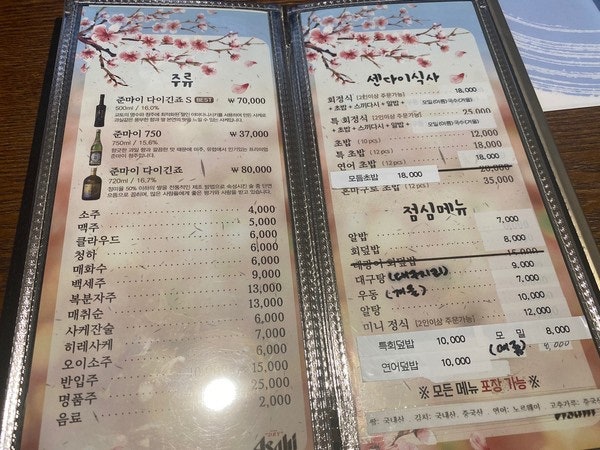 주류
준마이 다이긴죠 S BEST ₩ 70,000
500ml / 16.0%
준마이 750 ₩ 37,000
750ml / 15.6%
준마이 다이긴죠 ₩ 80,000
720ml / 16.7%
소주 4,000
맥주 5,000
클라우드 6,000
청하 6,000
매화수 6,000
백세주 9,000
복분자주 13,000
매취순 13,000
사케잔술 6,000
히레사케 7,000
오이소주 6,000
반입주 15,000
명품주 25,000
음료 2,000
Asahi
센다이식사
회정식 (2인이상 주문가능) 18,000
+ 초밥 + 스끼다시 + 알밥 + 모밀(여름)국수(겨울)
특 회정식 (2인이상 주문가능) 25,000
+ 초밥 + 스끼다시 + 알밥 + 모밀(여름)국수(겨울)
초밥 (10 pcs) 12,000
특 초밥 (12pcs) 18,000
연어 초밥 18,000
모듬초밥 18,000
혼마구로 초밥 35,000
점심메뉴
알밥 7,000
회덮밥 8,000
15,000
대구탕 (대구지리) 9,000
우동 (겨울) 7,000
알탕 10,000
미니 정식 (2인이상 주문가능) 12,000
특회덮밥 10,000 모 밀 (여름) 8,000
연어덮밥 10,000
※ 모든 메뉴 포장 가능 ※
쌀: 국내산, 김치: 국내산, 중국산 연어: 노르웨이 고추가루: 중국산